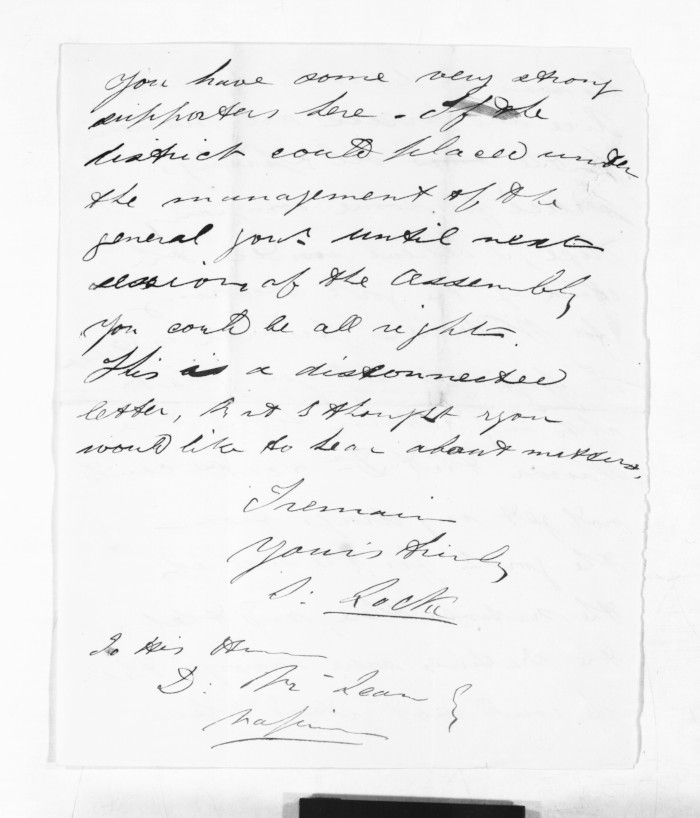 you have some very strong
supporters here. If the
district could placed under
the management of the
general govt. until next
session of the Assembly
you could be all right.
This is a disconnected
letter, but I thought you
would like to hear about matters,
I remain
Yours truly
S: Locke
To His Honor
D: McLean
Napier